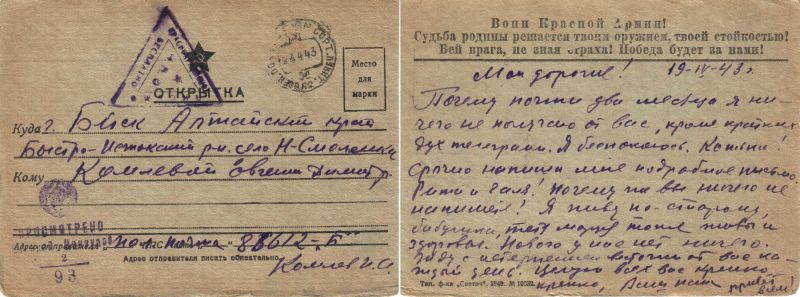 КРАСНОАРМЕЙСКОЕ
БЕСПЛАТНО
ОТКРЫТКА
Место
для
марки
Куда г. Бийск Алтайский край
Быстро-Истокский р-н. село Н-Смоленка
Кому Комлевой Евгении Димитр.
ПРОСМОТРЕНО
2
93
Адрес отправителя: пол. почта 88612-Б
Адрес отправителя писать обязательно.
Комлев
Воин Красной Армии!
Судьба родины решается твоим оружием, твоей стойкостью!
Бей врага, не зная страха! Победа будет за нами!
Мои дорогие! 19-IV-43 г.
Почему почти два месяца я ни-
чего не получаю от вас, кроме кратких
двух телеграмм. Я беспокоюсь.
Срочно напиши мне подробное письмо.
и Галя! Почему же вы ничего не
напишете! Я живу по-старому,
бабушка, тетя Маруся тоже живы и
здоровы. Нового у нас нет ничего.
Жду с нетерпением весточки от вас ка-
ждый день. Целую всех вас крепко,
крепко, Ваш папа
привет
всем!
Тип. ф-ки „Светоч“. 1942.